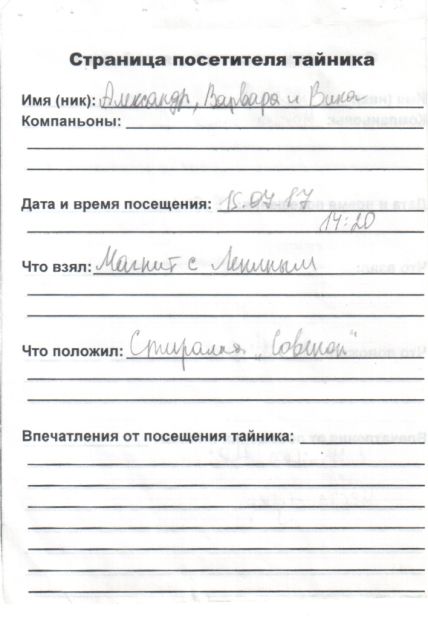 Страница посетителя тайника
Имя (ник): Александр, Варвара и Вика
Компаньоны:
Дата и время посещения: 15.07.17
14:20
Что взял: Магнит с Лениным
Что положил: Стиралка „
Впечатления от посещения тайника: